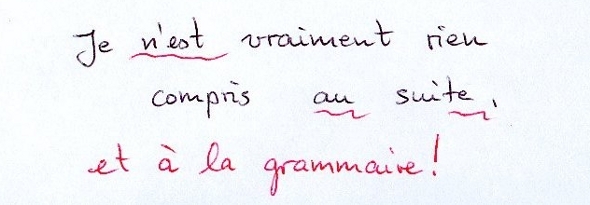 Je n'est vraiment rien
compris au suite,
et à la grammaire!